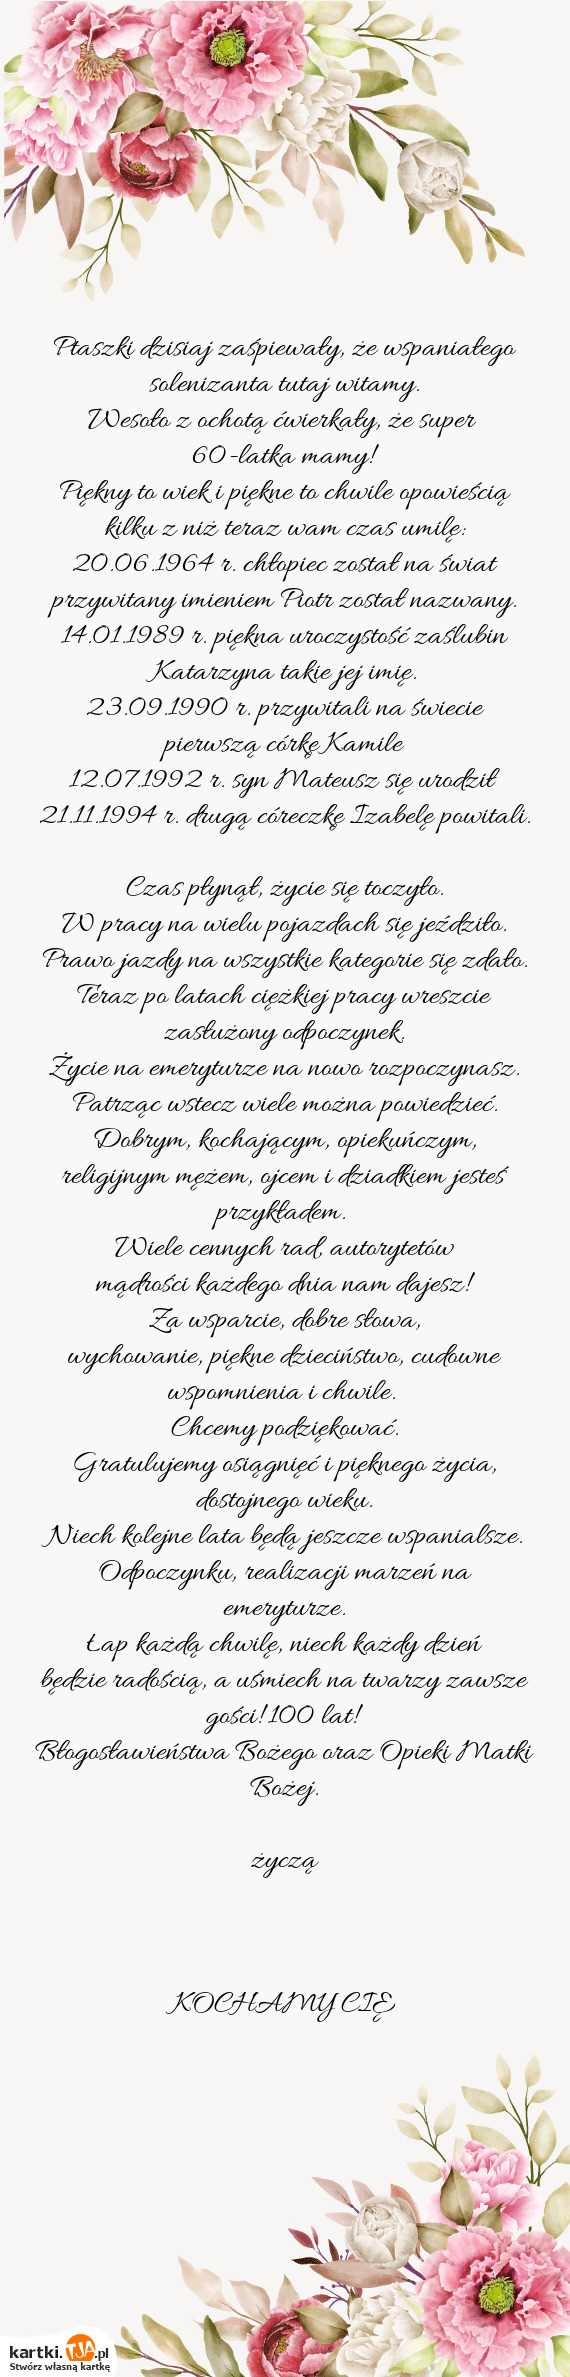 Ptaszki dzisiaj zaśpiewały, że wspaniałego
solenizanta tutaj witamy.
Wesoło z ochotą ćwierkały, że super
60-latka mamy!
Piękny to wiek i piękne to chwile opowieścią
kilku z niż teraz wam czas umilę:
20.06.1964 r. chłopiec został na świat
przywitany imieniem Piotr został nazwany.
14.01.1989 r. piękna uroczystość zaślubin
Katarzyna takie jej imię.
23.09.1990 r. przywitali na świecie
pierwszą córkę Kamile
12.07.1992 r. syn Mateusz się urodził
21.11.1994 r. drugą córeczkę Izabelę powitali.
Czas płynął, życie się toczyło.
W pracy na wielu pojazdach się jeździło.
Prawo jazdy na wszystkie kategorie się zdało.
Teraz po latach ciężkiej pracy wreszcie
zasłużony odpoczynek.
Życie na emeryturze na nowo rozpoczynasz.
Patrząc wstecz wiele można powiedzieć.
Dobrym, kochającym, opiekuńczym,
religijnym mężem, ojcem i dziadkiem jesteś
przykładem.
Wiele cennych rad, autorytetów
mądrości każdego dnia nam dajesz!
Za wsparcie, dobre słowa,
wychowanie, piękne dzieciństwo, cudowne
wspomnienia i chwile.
Chcemy podziękować.
Gratulujemy osiągnięć i pięknego życia,
dostojnego wieku.
Niech kolejne lata będą jeszcze wspanialsze.
Odpoczynku, realizacji marzeń na
emeryturze.
Łap każdą chwilę, niech każdy dzień
będzie radością, a uśmiech na twarzy zawsze
gości! 100 lat!
Błogosławieństwa Bożego oraz Opieki Matki
Bożej.
życzą
KOCHAMY CIĘ
kartki.TJA.pl
Stwórz własną kartkę